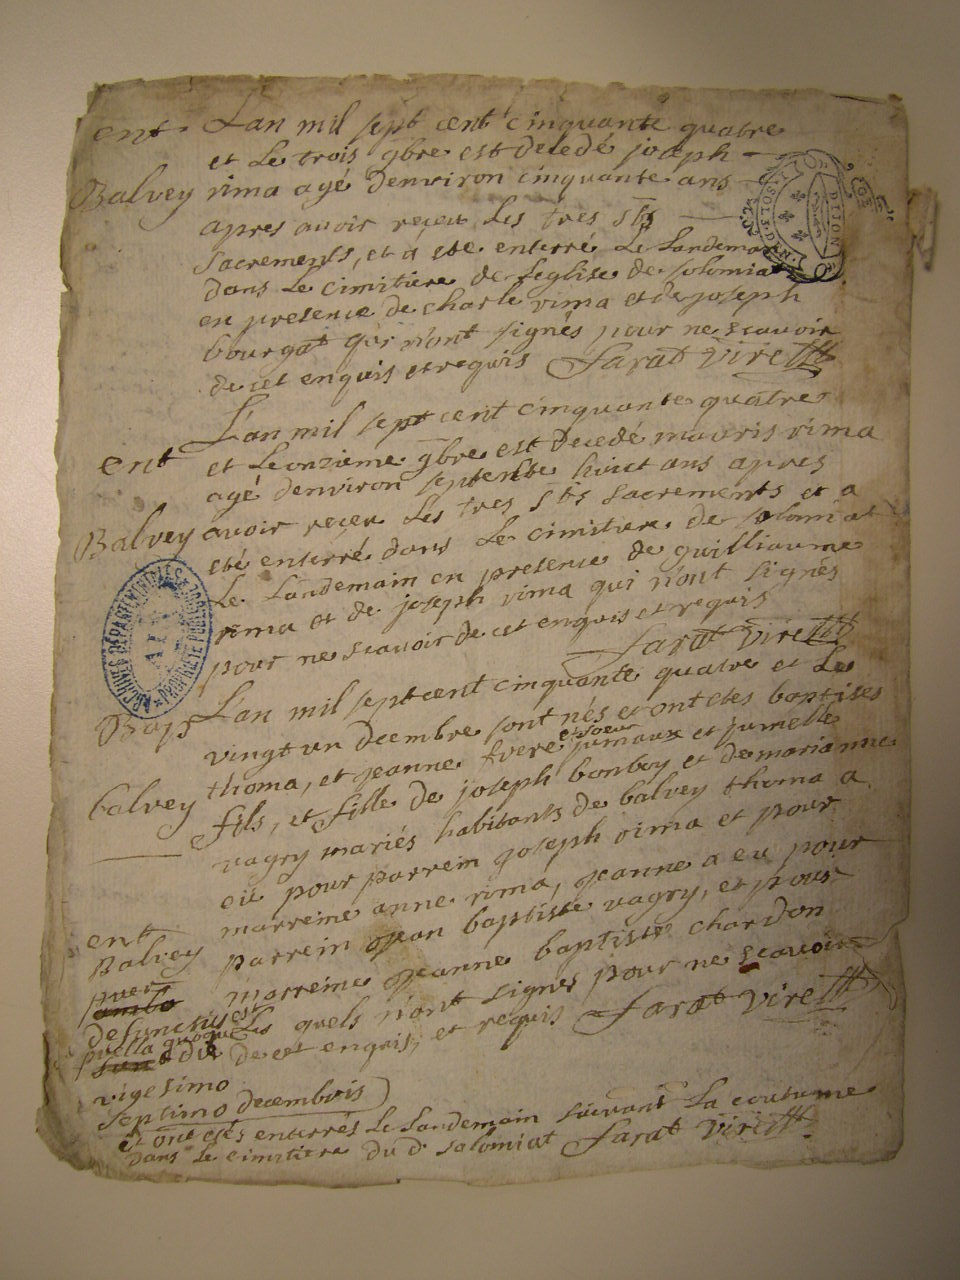 ent
L'an mil sept cent cinquante quatre
et Le trois gbre est decedé joseph
Balvey
rima agé denviron cinquante ans
apres avoir reçeu Les tres sts
sacrements, et a eté enterré Le Landemain
dans Le cimitiere de Leglise de solomiat
en presence de charle rima et de joseph
bourgat qui n'ont signés pour ne scavoir
de cet enquis et requis farat vire
L'an mil sept cent cinquante quatre
ent
et Leonzieme gbre est decedé mauris rima
agé denviron septente huict ans apres
Balvey
avoir reçeu Les tres sts sacrements et a
eté enterré dans Le cimitiere de solomiat
Le Landemain en presence de guilliaume
rima et de joseph rima qui n'ont signés
pour ne scavoir de cet enquis et requis
farat vire
ARCHIVES DÉPARTEMENTALES
AIN
PROPRIÉTÉ PUBLIQUE
DIJON
Bapt
L'an mil sept cent cinquante quatre et Le
vingt un decembre sont nés et ont etes baptises
thoma, et jeanne frere et soeur jumaux et jumelle
balvey
fils, et fille de joseph bonboy et de marianne
vagry mariés habitants de balvey thoma a
eü pour parrein joseph rima et pour
marreine anne rima, jeanne a eu pour
ent
parrein jean baptiste vagry, et pour
Balvey
marreine jeanne baptiste chardon
puer
defunctus est
Les quels n'ont signés pour ne scavoir
puella quoque
die
de cet enquis, et requis farat vire
vigesimo
septimo decembris
et ont etés enterrés Le Landemain suivant La coutume
dans Le cimitiere du d solomiat farat vire